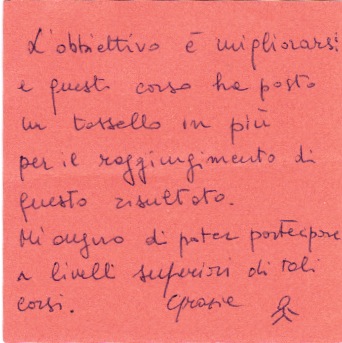 L'obbiettivo è migliorarsi
e questi corso ha posto
un tassello in più
per il raggiungimento di
questo risultato.
Mi auguro di poter partecipare
a livelli superiori di tali
corsi. Grazie